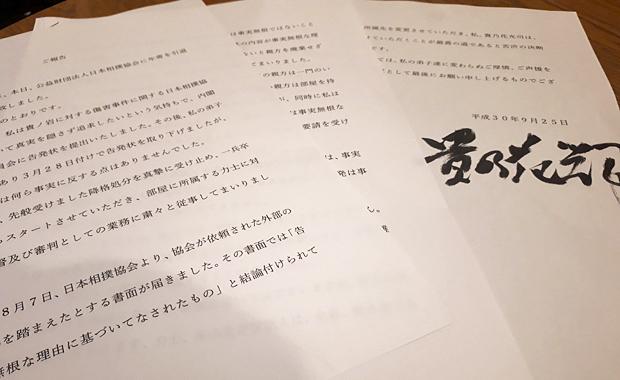 ご報告
、本日、公益財団法人日本相撲協会に年寄を引退
致しました。
のとおりです。
私は貴ノ岩に対する傷害事件に関する日本相撲協
いて真実を隠さず追求したいという気持ちで、内閣
員会に告発状を提出いたしました。その後、私の弟子
あり3月28日付けで告発状を取り下げましたが、
は何ら事実に反する点はありませんでした。
、先般受けました降格処分を真摯に受け止め、一兵卒
らスタートさせていただき、部屋に所属する力士に対
督及び審判としての業務に粛々と従事してまいりまし
8月7日、日本相撲協会より、協会が依頼された外部の
を踏まえたとする書面が届きました。その書面では「告
無根な理由に基づいてなされたもの」と結論付けられて
は事実無根ではないこと
の内容が事実無根な理
ないと親方を廃業せざ
てまいりました。
の親方は一門のい
親方は部屋を持
、同時に私は
は事実無根な
要請を受け
は、事実
発は事
し。
所属先を変更させていただき、私、貴乃花光司は、
けていただくことが最善の道であると苦渋の決断
ては、私の弟子達に変わらぬご厚情、ご声援を
として最後にお願い申し上げるものでござ
平成30年9月25日
貴乃花光司